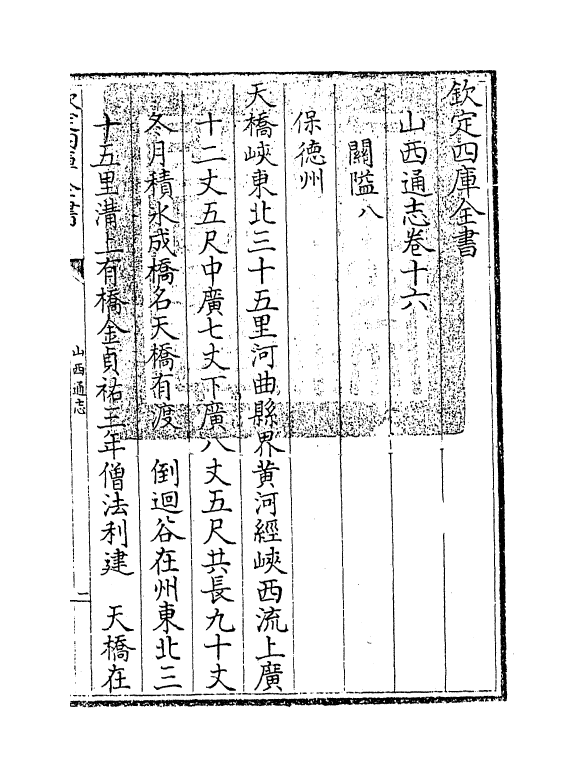 欽定四庫全書
山西通志卷十六
關隘八
保德州
天橋峽東北三十五里河曲縣界黃河經峽西流上廣
十二丈五尺中廣七丈下廣八丈五尺共長九十丈
冬月積氷成橋名天橋有渡　倒迴谷在州東北三
十五里溝上有橋金貞祐三年僧法利建　天橋在
山西通志